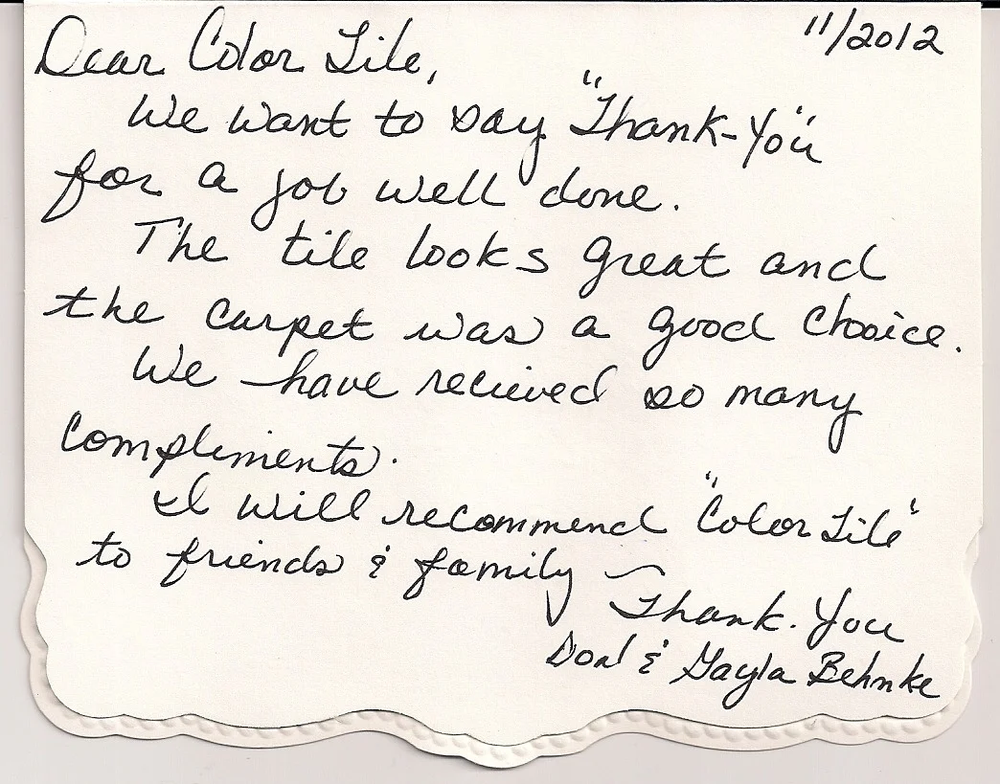 11/2012
Dear Color Tile,
We want to say "Thank-You"
for a job well done.
The tile looks great and
the carpet was a good choice.
We have recieved so many
compliments.
I will recommend "Color Tile"
to friends & family ~
Thank. You
Don & Gayla Behnke